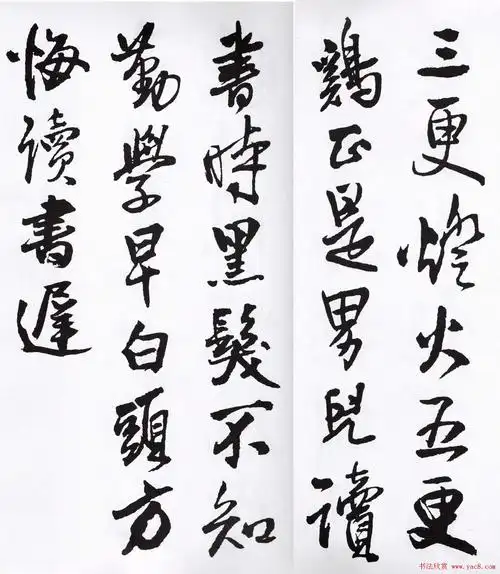 三更燈火五更
鷄正是男兒讀
書時黑髮不知
勤學早白頭方
悔讀書遲
书法欣赏 www.yac8.com